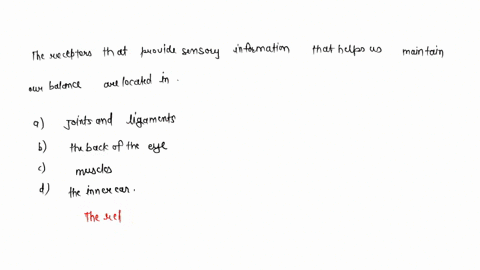 The receptors that provide sensory information that helps us maintain
our balance are located in .
a) joints and ligaments
b) the back of the eye
c) muscles
d) the inner ear.
The ref